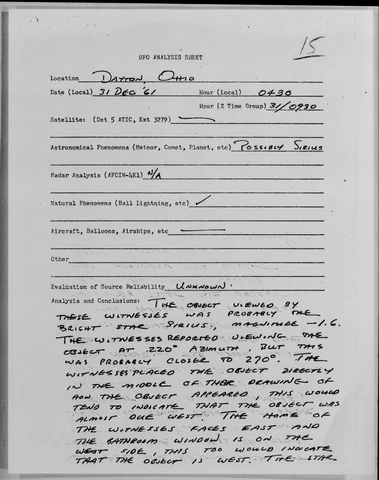 15
UFO ANALYSIS SHEET
Location DAYTON, OHIO
Date (Local) 31 DEC '61 Hour (Local) 0430
Hour (Z Time Group) 31/0930
Satellite: (Det 5 ATIC, Ext 3279)
Astronomical Phenomena (Meteor, Comet, Planet, etc) POSSIBLY SIRIUS
Radar Analysis (AFCIN-4E1) N/A
Natural Phenomena (Ball Lightning, etc) ✓
Aircraft, Balloons, Airships, etc
Other
Evaluation of Source Reliability UNKNOWN.
Analysis and Conclusions: THE OBJECT VIEWED BY
THESE WITNESSES WAS PROBABLY THE
BRIGHT STAR SIRIUS, MAGNITUDE -1.6.
THE WITNESSES REPORTED VIEWING THE
OBJECT AT 220° AZIMUTH, BUT THIS
WAS PROBABLY CLOSER TO 270°. THE
WITNESSES PLACED THE OBJECT DIRECTLY
IN THE MIDDLE OF THEIR DRAWING OF
HOW THE OBJECT APPEARED, THIS WOULD
TEND TO INDICATE THAT THE OBJECT WAS
ALMOST DUE WEST. THE HOME OF
THE WITNESSES FACES EAST AND
THE BATHROOM WINDOW IS ON THE
WEST SIDE, THIS TOO WOULD INDICATE
THAT THE OBJECT IS WEST. THE STAR